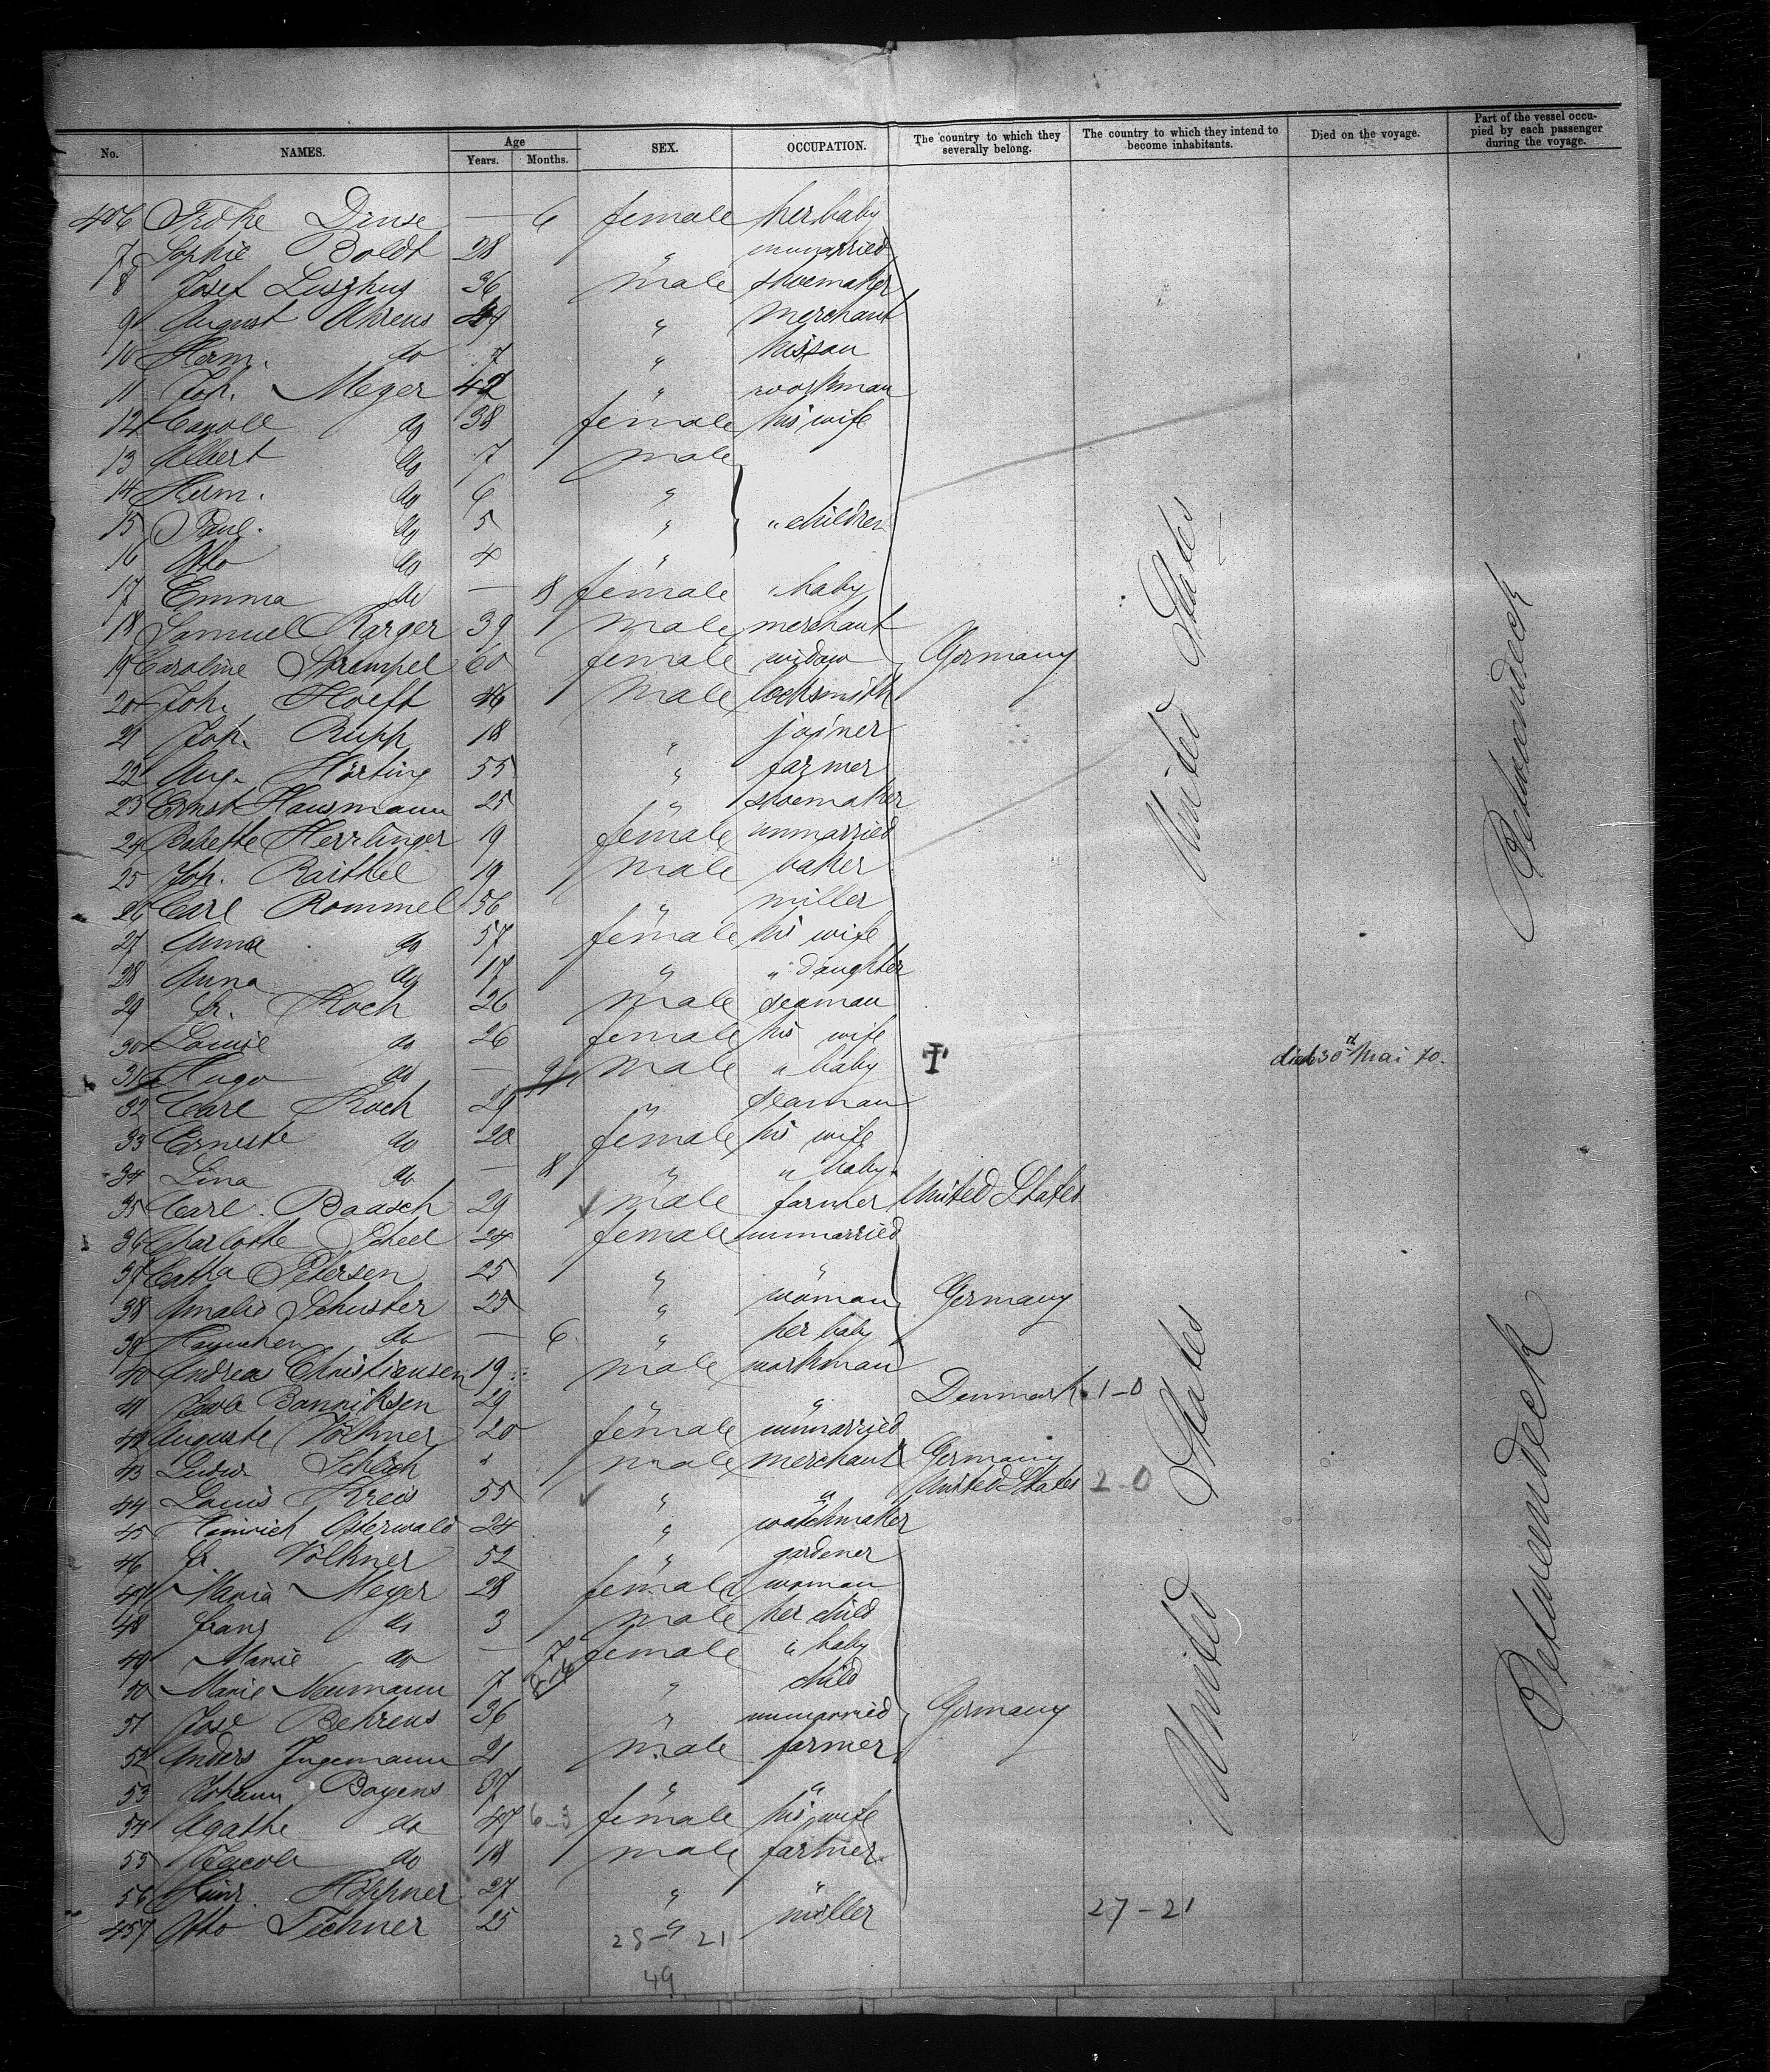 No. NAMES. Age Years. Months. SEX. OCCUPATION. The country to which they severally belong. The country to which they intend to become inhabitants. Died on the voyage. Part of the vessel occupied by each passenger during the voyage.
406 Druse — 6 female her baby
7 Sophie Boldt 28 " unmarried
8 Josef 36 male shoemaker
9 August Ahrens 49 " merchant
10 Herm. do 7 " his son
11 Joh. Meyer 42 " workman
12 Caroll do 38 female his wife
13 Albert do 7 male
14 Herm. do 6 "
15 Paul. do 5 " " children
16 Otto do 4 "
17 Emma do — 8 female " baby
18 Samuel Karger 39 male merchant
19 Caroline Strempel 60 female widow Germany
20 Joh. Hoeft 46 male locksmith
21 Joh. Rupp 18 " joiner
22 Aug. Hörting 55 " farmer
23 Ernst Hausmann 25 " shoemaker
24 Babette Herrlinger 19 female unmarried
25 Joh. Raithel 19 male baker
26 Carl Rommel 56 " miller
27 Anna do 57 female his wife
28 Anna do 17 " " daughter
29 Fr. Koch 26 male seaman
30 Louise do 26 female his wife
31 Hugo do — male " baby died 30 Mai 70.
32 Carl Koch 29 " seaman
33 Erneste do 20 female his wife
34 Lina do — 8 " " baby
35 Carl Baasch 29 male farmer United States
36 Charlotte Scheel 24 female unmarried
37 Catha Petersen 25 " "
38 Amalie Schuster 25 " woman Germany
39 do — 6 " her baby
40 Andreas Christiansen 19 male workman
41 29 " " Denmark 1-0
42 Auguste Völkner 20 female unmarried
43 male merchant Germany
44 Louis Kreis 55 " " United States 2-0
45 Heinrich Osterwald 24 " watchmaker
46 Fr. Völkner 52 " gardener
47 Maria Meyer 28 female woman
48 Franz do 3 male her child
49 Marie do — 7 female " baby
50 Marie Neumann 7 " child
51 Behrens 36 " unmarried Germany
52 Anders Jugemann 21 male farmer
53 Johann Boyens 37 " "
54 Agathe do 47 6-3 female his wife
55 Jacob do 18 male farmer
56 Heinr. Höppner 27 " "
457 Otto Tichner 25 " miller
United States
United States
Betweendeck
Betweendeck
27-21
28-21
49